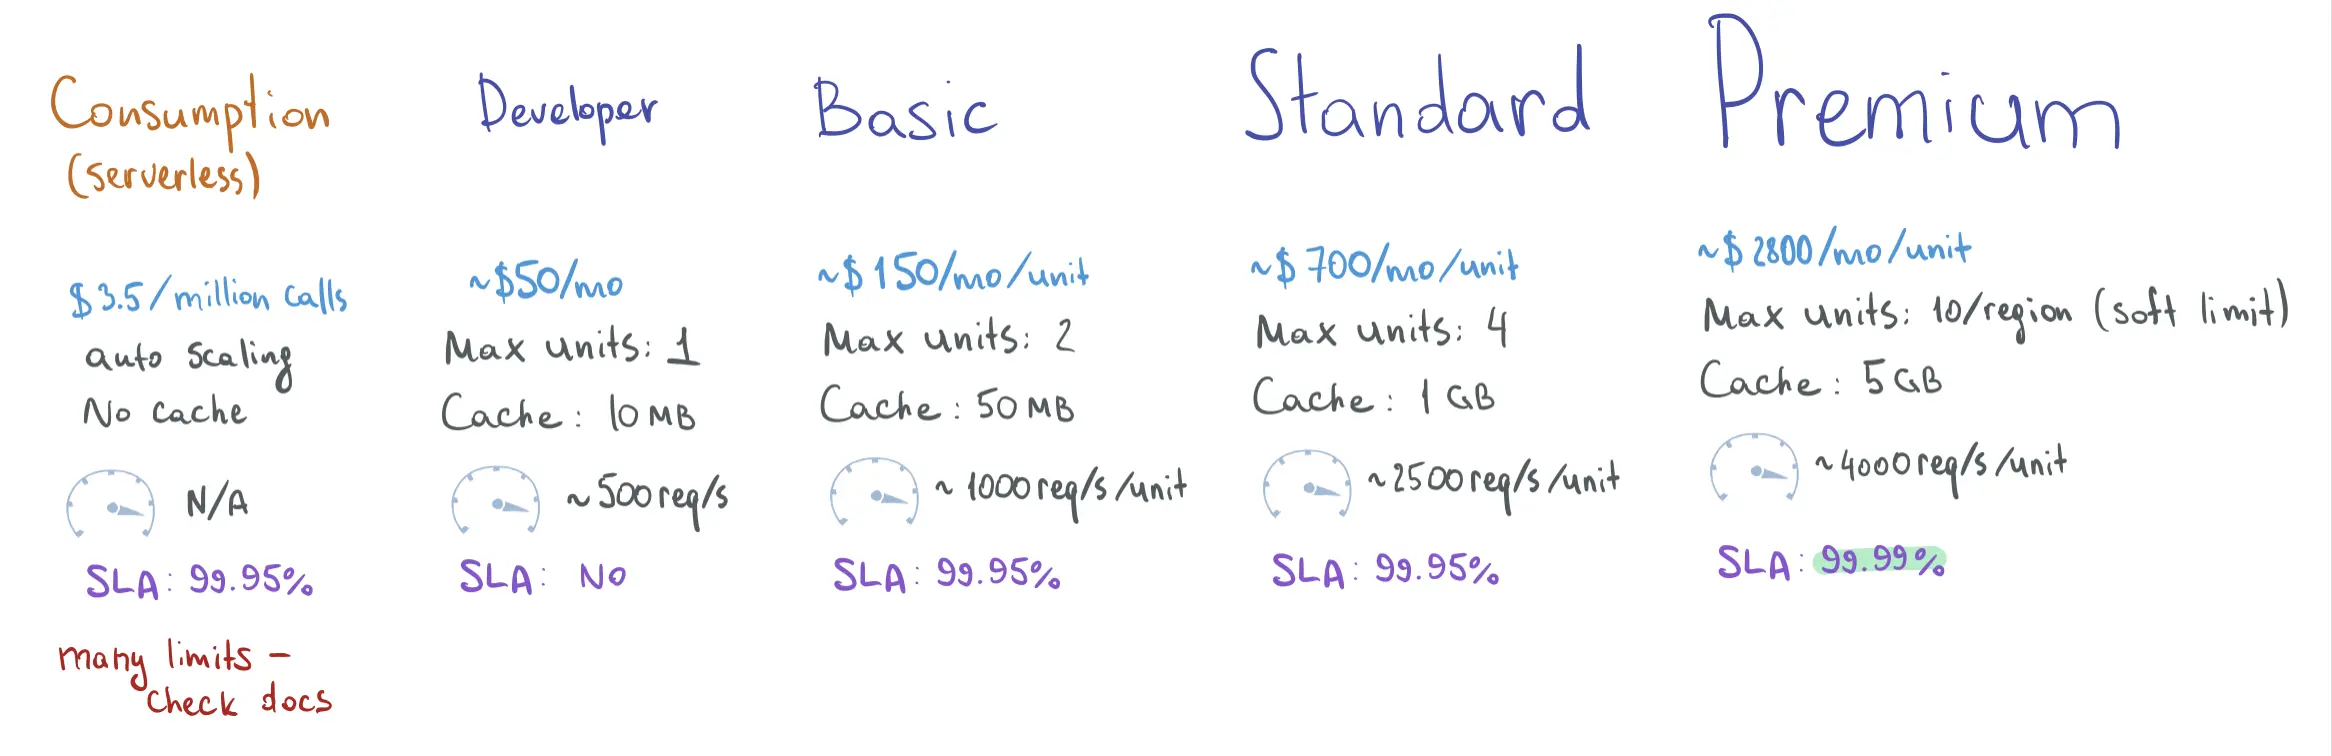 Consumption
(serverless)
$3.5/million calls
auto scaling
No cache
N/A
SLA: 99.95%
many limits -
check docs
Developer
~$50/mo
Max units: 1
Cache: 10 MB
~500 req/s
SLA: NO
Basic
~$150/mo/unit
Max units: 2
Cache: 50 MB
~1000 req/s/unit
SLA: 99.95%
Standard
~$700/mo/unit
Max units: 4
Cache: 1 GB
~2500 req/s/unit
SLA: 99.95%
Premium
~$2800/mo/unit
Max units: 10/region (soft limit)
Cache: 5 GB
~4000 req/s/unit
SLA: 99.99%